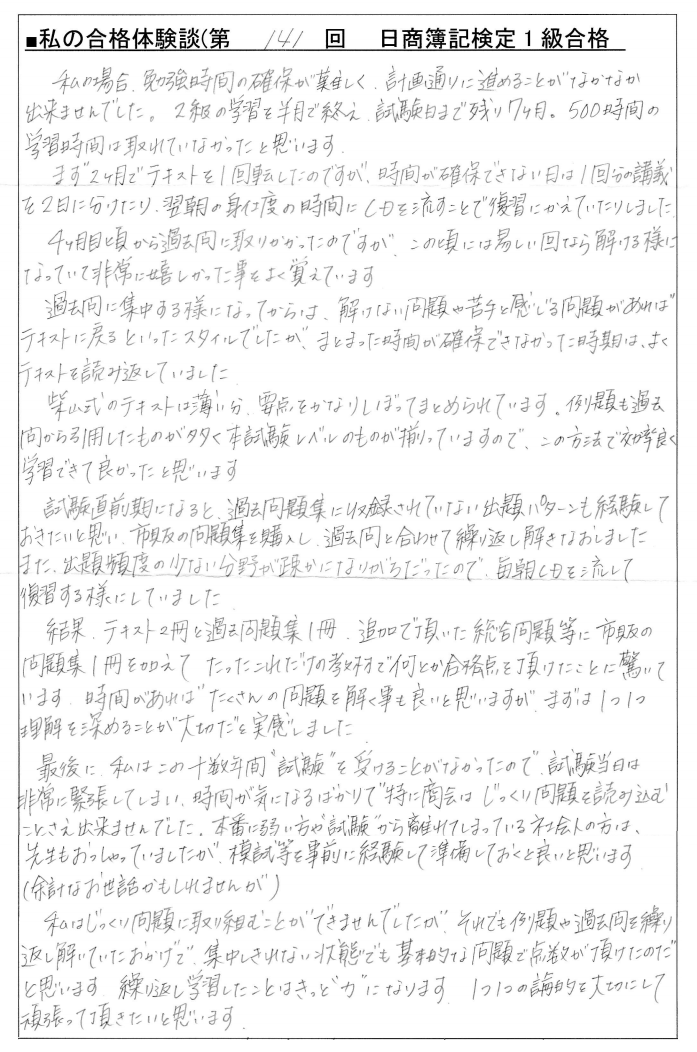 ■私の合格体験談(第 141 回 日商簿記検定1級合格
私の場合、勉強時間の確保が難しく、計画通りに進めることがなかなか
出来ませんでした。2級の学習を半月で終え、試験日まで残り7ヶ月。500時間の
学習時間は取れていなかったと思います。
まず2ヶ月でテキストを1回転したのですが、時間が確保できない日は1回分の講義
を2日に分けたり、翌朝の身仕度の時間にCDを流すことで復習にかえていたりしました。
4ヶ月目頃から過去問に取りかかったのですが、この頃には易しい回なら解ける様に
なっていて非常に嬉しかった事をよく覚えています
過去問に集中する様になってからは、解けない問題や苦手と感じる問題があれば
テキストに戻るといったスタイルでしたが、まとまった時間が確保できなかった時期は、よく
テキストを読み返していました
柴山式のテキストは薄い分、要点をかなりしぼってまとめられています。例題も過去
問から引用したものが多く本試験レベルのものが揃っていますので、この方法で効率良く
学習できて良かったと思います
試験直前期になると、過去問題集に収録されていない出題パターンも経験して
おきたいと思い、市販の問題集を購入し、過去問と合わせて繰り返し解きなおしました
また、出題頻度の少ない分野が疎かになりがちだったので、毎朝CDを流して
復習する様にしていました
結果、テキスト2冊と過去問題集1冊、追加で頂いた総合問題等に市販の
問題集1冊を加えて たったこれだけの教材で何とか合格点を頂けたことに驚いて
います。時間があればたくさんの問題を解く事も良いと思いますが、まずは1つ1つ
理解を深めることが大切だと実感しました
最後に、私はこの十数年間“試験”を受けることがなかったので、試験当日は
非常に緊張してしまい、時間が気になるばかりで特に商会は じっくり問題を読み込む
ことさえ出来ませんでした。本番に弱い方や“試験”から離れてしまっている社会人の方は、
先生もおっしゃっていましたが、模試等を事前に経験して準備しておくと良いと思います
(余計なお世話かもしれませんが)
私はじっくり問題に取り組むことができませんでしたが、それでも例題や過去問を繰り
返し解いていたおかげで、集中しきれない状態でも基本的な問題で点数が頂けたのだ
と思います 繰り返し学習したことはきっと“力”になります 1つ1つの論的を大切にして
頑張って頂きたいと思います